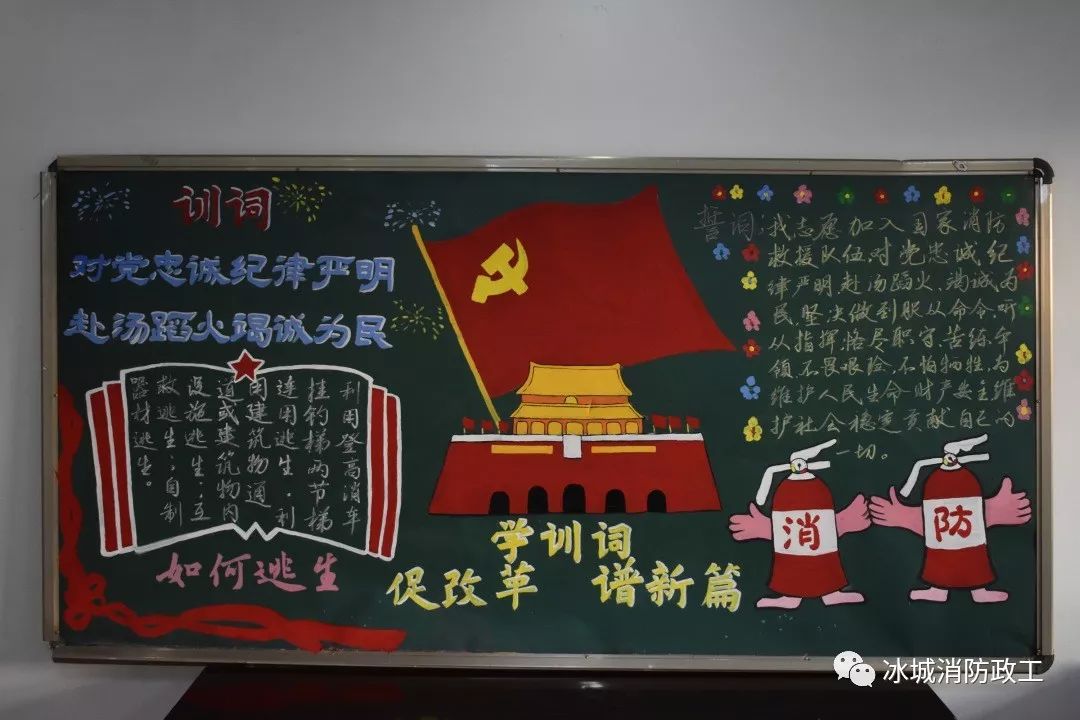 训词
对党忠诚纪律严明
赴汤蹈火竭诚为民
利用登高消车
挂钩梯两节梯
连用逃生,利
用建筑物通
道或建筑物内
设施逃生;互
救逃生;自制
器材逃生。
如何逃生
学训词
促改革 谱新篇
誓词:我志愿加入国家消防
救援队伍对党忠诚纪
律严明,赴汤蹈火,竭诚为
民,坚决做到服从命令、听
从指挥,恪尽职守、苦练本
领,不畏艰险、不怕牺牲,为
维护人民生命财产安全维
护社会稳定贡献自己的
一切。
消
防
冰城消防政工